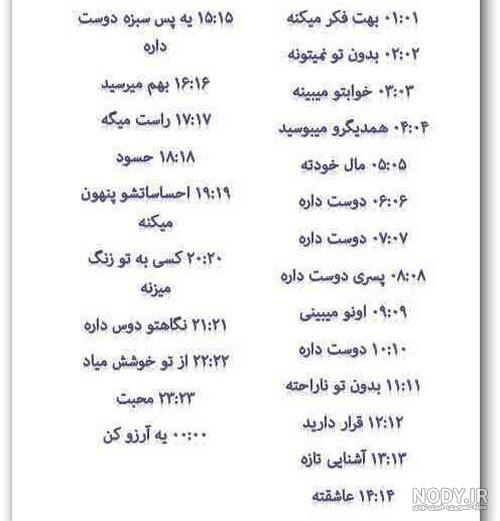 ۰۱:۰۱ بهت فکر میکنه
۰۲:۰۲ بدون تو نمیتونه
۰۳:۰۳ خوابتو میبینه
۰۴:۰۴ همدیگرو میبوسید
۰۵:۰۵ مال خودته
۰۶:۰۶ دوست داره
۰۷:۰۷ دوست داره
۰۸:۰۸ پسری دوست داره
۰۹:۰۹ اونو میبینی
۱۰:۱۰ دوست داره
۱۱:۱۱ بدون تو ناراحته
۱۲:۱۲ قرار دارید
۱۳:۱۳ آشنایی تازه
۱۴:۱۴ عاشقته
۱۵:۱۵ یه پس سبزه دوست
داره
۱۶:۱۶ بهم میرسید
۱۷:۱۷ راست میگه
۱۸:۱۸ حسود
۱۹:۱۹ احساساتشو پنهون
میکنه
۲۰:۲۰ کسی به تو زنگ
میزنه
۲۱:۲۱ نگاهتو دوس داره
۲۲:۲۲ از تو خوشش میاد
۲۳:۲۳ محبت
۰۰:۰۰ یه آرزو کن
NODY.IR